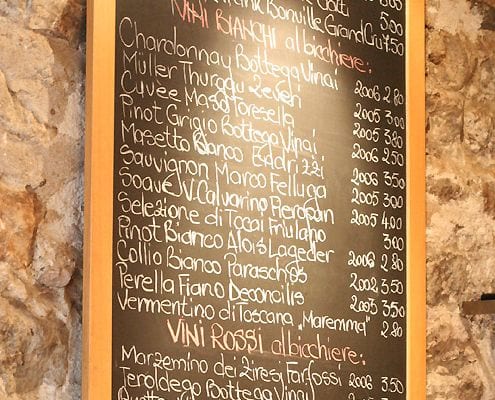 Gatti 5.00
Bonville Grand Cru 7.50
VINI BIANCHI al bicchiere:
Chardonnay Bottega Vinai 2006 2.80
Müller Thurgau Zeveri 2005 3.80
Cuvee Maso Toresella 2005 3.80
Pinot Grigio Bottega Vinai 2006 2.50
Masetto Bianco Endrizzi
Sauvignon Marco Felluga 2006 3.50
Soave V. Calvarino Pieropan 2005 3.00
Selezione di Tocai Friulano 2005 4.00
Pinot Bianco Alois Lageder 3.00
Collio Bianco Paraschos 2006 2.80
Perella Fiano Deconcilis 2002 3.50
Vermentino di Toscana "Maremma" 2005 3.50
2.80
VINI ROSSI al bicchiere:
Marzemino dei Ziresi Farfossi
Teroldego Bottega Vinai